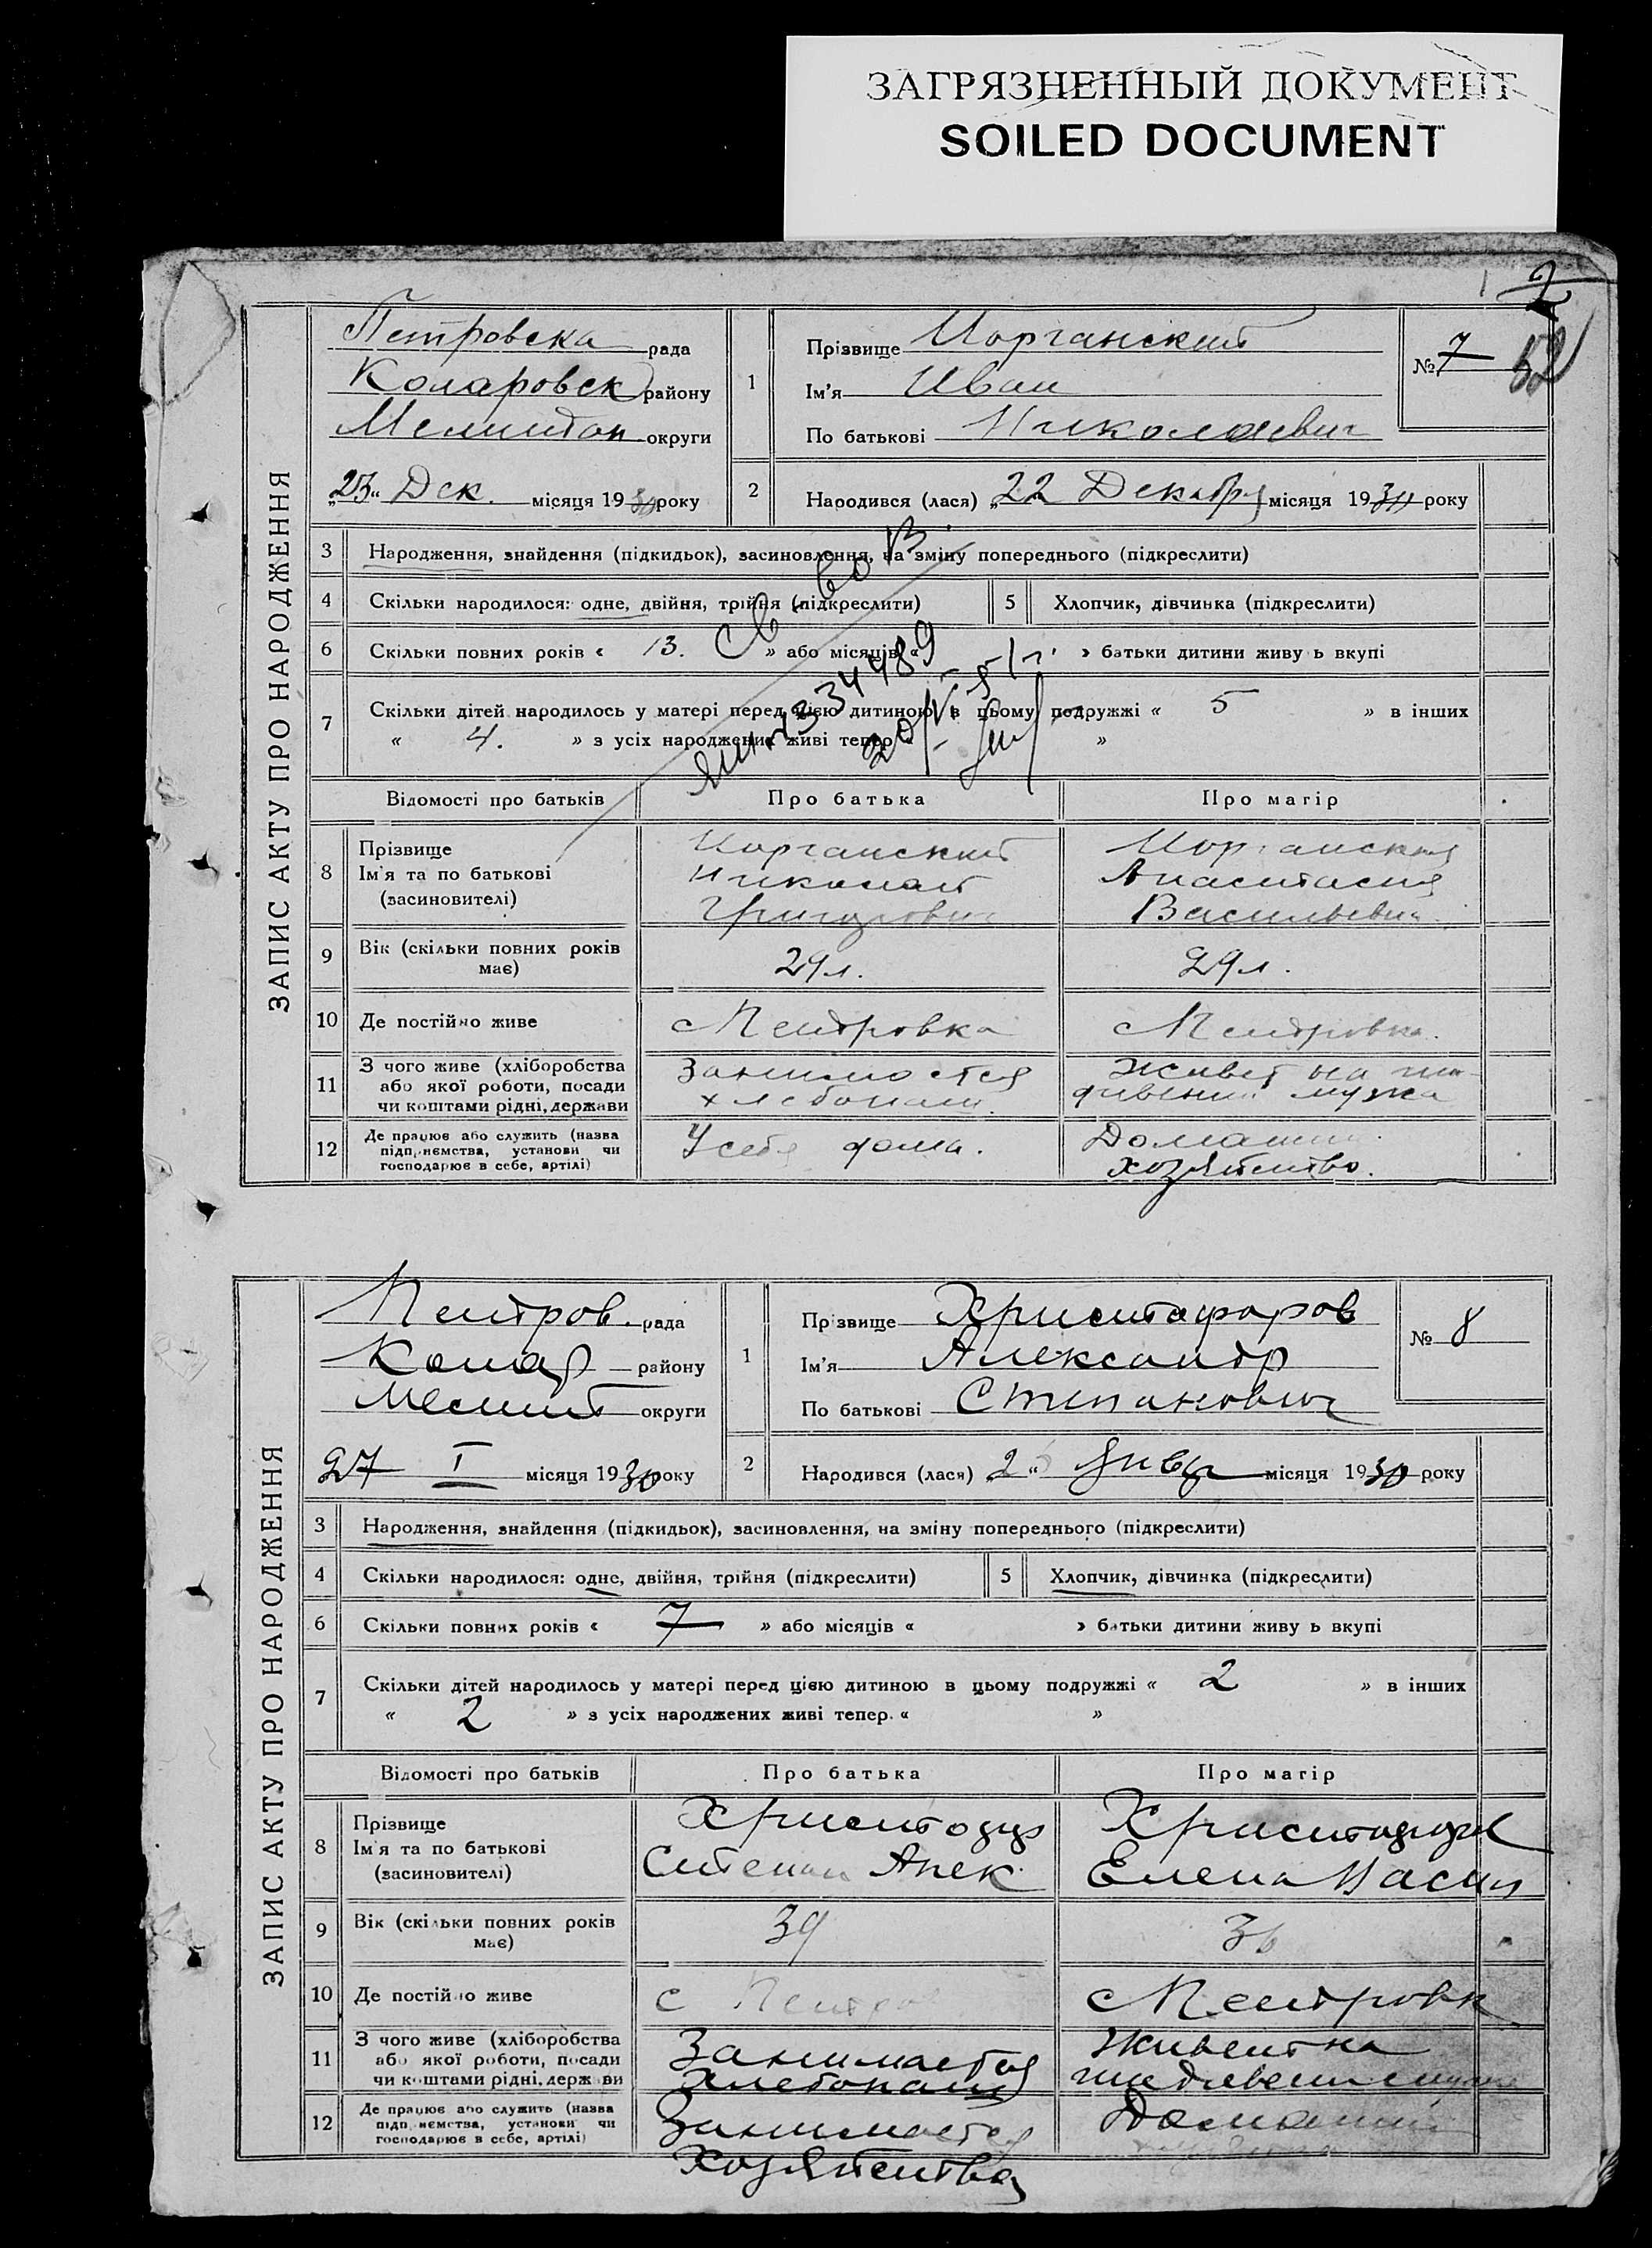 ЗАГРЯЗНЕННЫЙ ДОКУМЕНТ
SOILED DOCUMENT
2
52
ЗАПИС АКТУ ПРО НАРОДЖЕННЯ
Петровска рада
Коларовск району
Мелитоп округи
„23“ Дек. місяця 1930 року
1
Прізвище Иорганский
Ім'я Иван
По батькові Николаевич
№ 7
2
Народився (лася) „22 Декабря місяця 1930 року
3 Народження, знайдення (підкидьок), засиновлення, на зміну попереднього (підкреслити)
4 Скільки народилося: одне, двійня, трійня (підкреслити)
5 Хлопчик, дівчинка (підкреслити)
6 Скільки повних років « 13. » або місяців « » батьки дитини живу ь вкупі
7 Скільки дітей народилось у матері перед цією дитиною в цьому подружжі « 5 » в інших
« 4. » з усіх народжених живі тепер «  »
Св во В.
334489
Відомості про батьків Про батька Про матір
8 Прізвище
Ім'я та по батькові
(засиновителі)
Иорганский
Николай
Григорович
Иорганская
Анастасия
Васильевна
9 Вік (скільки повних років
має)
29 л.
29 л.
10 Де постійно живе
с Петровка
с Петровка.
11 З чого живе (хліборобства
або якої роботи, посади
чи коштами рідні, держави
Занимается
хлебопаш.
Живет на иж-
дивении мужа
12 Де працює або служить (назва
підприємства, установи чи
господарює в себе, артілі)
У себя дома.
Домашн.
хозяйство.
ЗАПИС АКТУ ПРО НАРОДЖЕННЯ
Петров. рада
Колар району
Мелит округи
27 I місяця 1930 року
1
Прізвище Христофоров
Ім'я Александр
По батькові Степанович
№ 8
2
Народився (лася) „ “ Янва місяця 1930 року
3 Народження, знайдення (підкидьок), засиновлення, на зміну попереднього (підкреслити)
4 Скільки народилося: одне, двійня, трійня (підкреслити)
5 Хлопчик, дівчинка (підкреслити)
6 Скільки повних років « 7 » або місяців « » батьки дитини живу ь вкупі
7 Скільки дітей народилось у матері перед цією дитиною в цьому подружжі « 2 » в інших
« 2 » з усіх народжених живі тепер. «  »
Відомості про батьків Про батька Про матір
8 Прізвище
Ім'я та по батькові
(засиновителі)
Степан Алек
Елена Васил
9 Вік (скільки повних років
має)
39
10 Де постійно живе
с Петров
с Петровк
11 З чого живе (хліборобства
або якої роботи, посади
чи коштами рідні, держави
Занимается
хлебопаш
Живент на
12 Де працює або служить (назва
підприємства, установи чи
господарює в себе, артілі)
Занимается
Хозяйства
Домашн